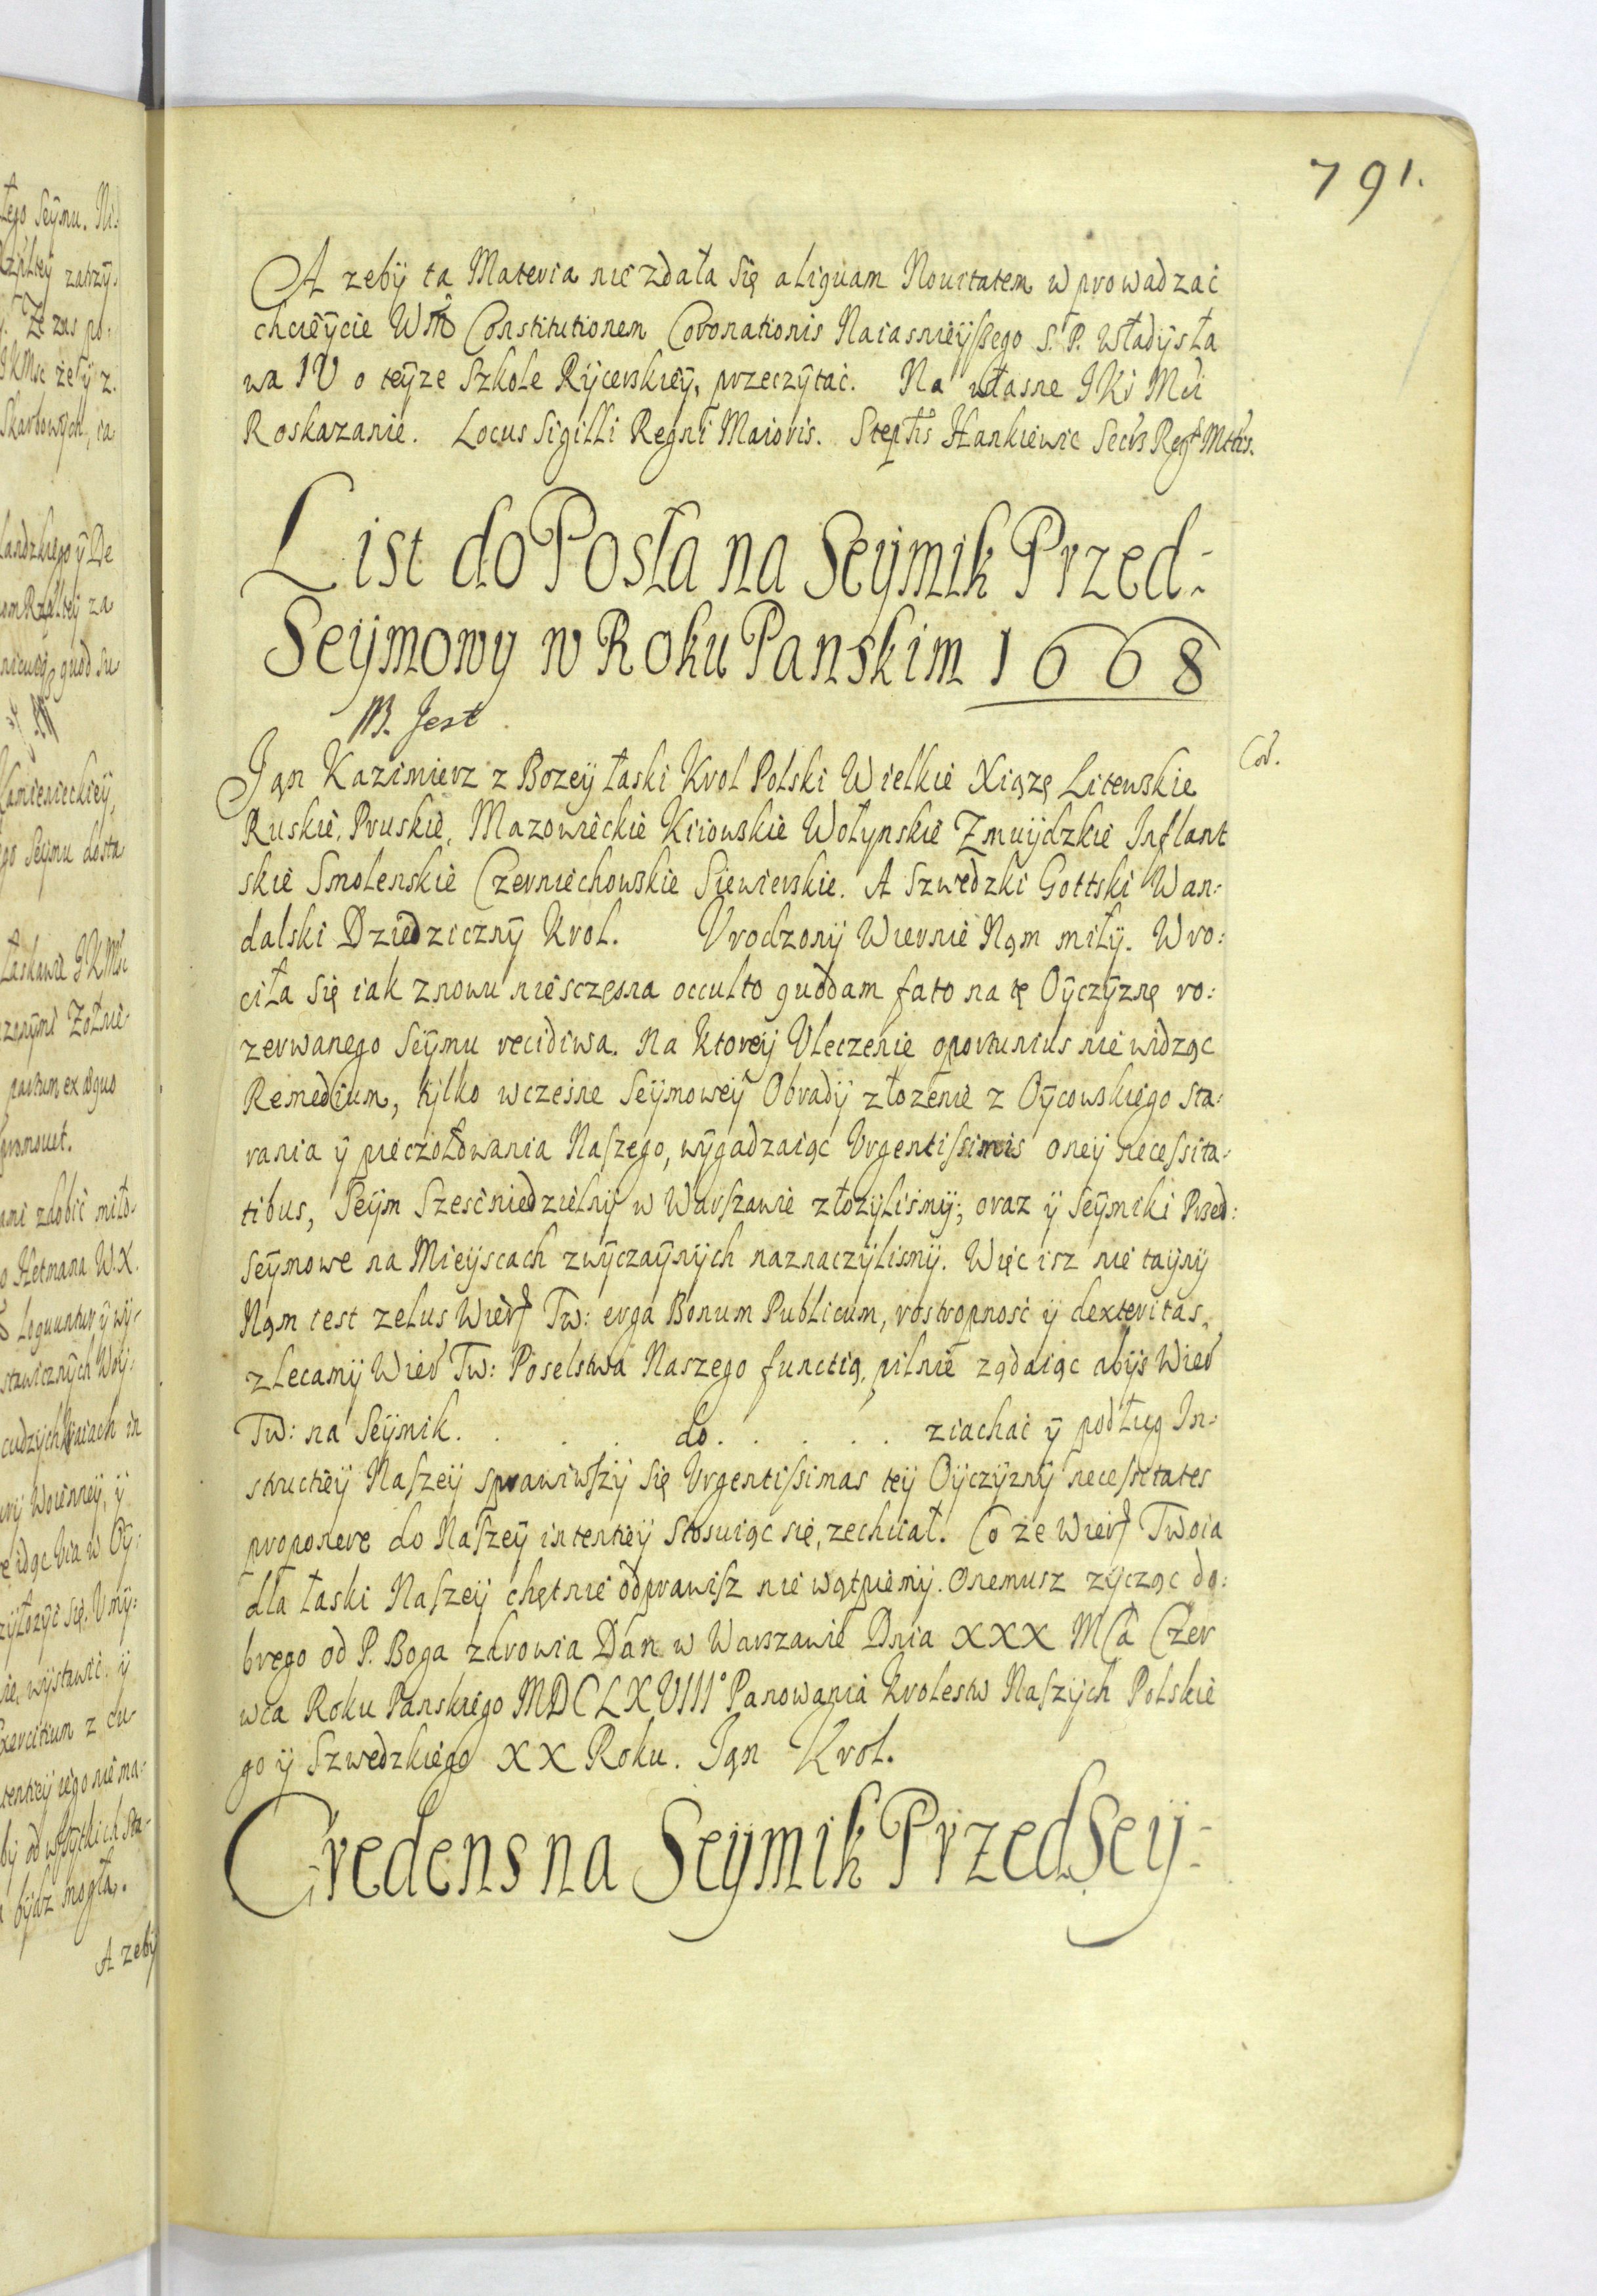 791.
A zeby ta Materia nie zdała się aliquam Nouitatem wprowadzać
chcieycie Wm Constitutionem Coronationis Naiasnieyszego S. P. Władysła
wa IV o teyze Szkole Rycerskiey, przeczytać. Na własne JKi Mci
Roskazanie. Locus Sigilli Regni Maioris. Stephs Hankiewic Secrs Regs Mttis.
List do Posła na Seymik Przed-
Seymowy w Roku Panskim 1668
NB. Jest
Cor.
Jan Kazimierz z Bozey łaski Krol Polski Wielkie Xiązę Litewskie
Ruskie, Pruskie, Mazowieckie Kiiowskie Wołynskie Zmuydzkie Inflant
skie Smolenskie Czerniechowskie Siewierskie. A Szwedzki Gottski Wan:
dalski Dziedziczny Krol. Vrodzony Wiernie Nam miły. Wro:
ciła się iak znowu niesczęsna occulto quodam fato na tę Oyczyznę ro:
zerwanego Seymu recidiwa. Na ktorey Vleczenie oportunius nie widząc
Remedium, tylko wczesne Seymowey Obrady złozenie z Oycowskiego sta:
rania y pieczołowania Naszego, wygadzaiąc Vrgentissimis oney necessita:
tibus, Seym Sześćniedzielny w Warszawie złozyliśmy; oraz y Seymiki Przed:
seymowe na Mieyscach zwyczaynych naznaczylismy. Więc isz nie tayny
Nam iest zelus Wier Tw: erga Bonum Publicum, rostropność y dexteritas,
zlecamy Wier Tw: Poselstwa Naszego functią, pilnie ządaiąc abyś Wier
Tw: na Seymik. . . . . do. . . . . . ziachać y podług In:
structiey Naszey sprawiwszy się Vrgentissimas tey Oyczyzny necessitates
proponere do Naszey intentiey stosuiąc się, zechciał. Co ze Wier Twoia
dla łaski Naszey chętnie odprawisz nie wątpiemy. Onemusz zycząc do:
brego od P. Boga zdrowia Dan w Warszawie Dnia XXX Mca Czer
wca Roku Panskiego MDCLXVIII° Panowania Krolestw Naszych Polskie
go y Szwedzkiego XX Roku. Jan Krol.
Credens na Seymik Przedsey-